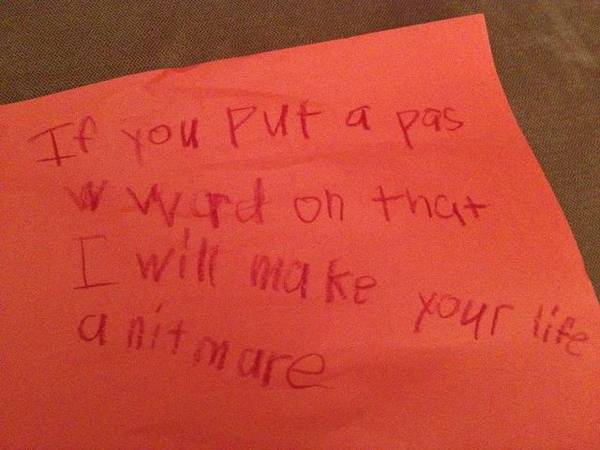 If you put a pas
w word on that
I will make your life
a nitmare